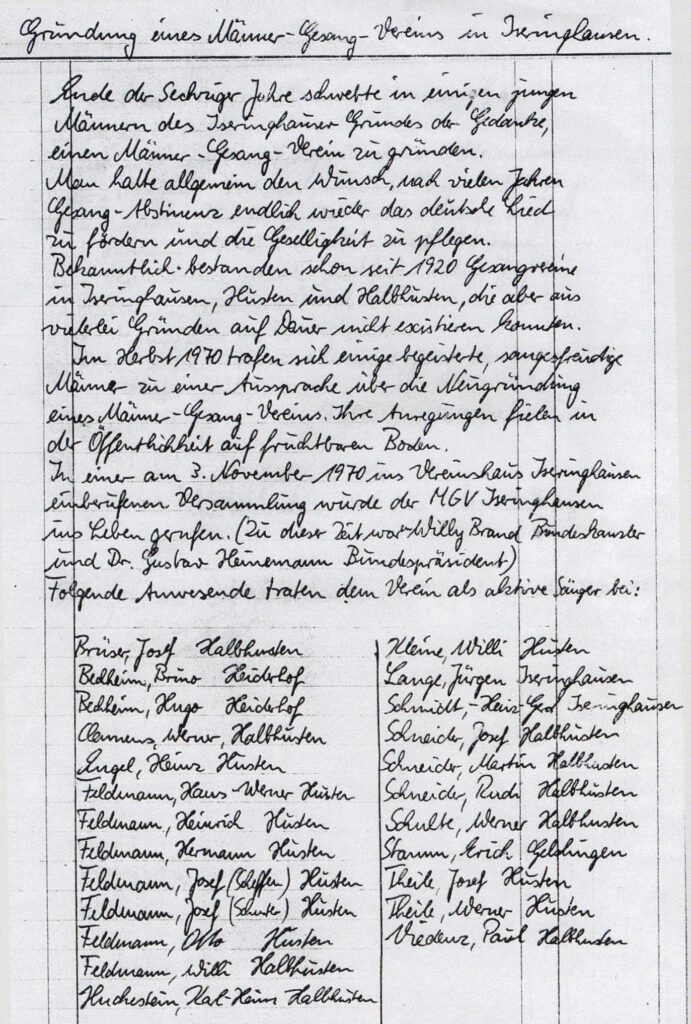 Gründung eines Männer-Gesang-Vereins in Iseringhausen.
Ende der Sechziger Jahre schwebte in einigen jungen
Männern des Iseringhauser Grundes der Gedanke,
einen Männer-Gesang-Verein zu gründen.
Man hatte allgemein den Wunsch, nach vielen Jahren
Gesang-Abstinenz endlich wieder das deutsche Lied
zu fördern und die Geselligkeit zu pflegen.
Bekanntlich bestanden schon seit 1920 Gesangvereine
in Iseringhausen, Husten und Halbhusten, die aber aus
vielerlei Gründen auf Dauer nicht existieren konnten.
Im Herbst 1970 trafen sich einige begeisterte, sangesfreudige
Männer zu einer Aussprache über die Neugründung
eines Männer-Gesang-Vereins. Ihre Anregungen fielen in
der Öffentlichkeit auf fruchtbaren Boden.
In einer am 3. November 1970 ins Vereinshaus Iseringhausen
einberufenen Versammlung wurde der MGV Iseringhausen
ins Leben gerufen. (Zu dieser Zeit war Willy Brand Bundeskanzler
und Dr. Gustav Heinemann Bundespräsident)
Folgende Anwesende traten dem Verein als aktive Sänger bei:
Brüser, Josef Halbhusten
Bedheim, Bruno Heiderhof
Bedheim, Hugo Heiderhof
Clemens, Werner, Halbhusten
Engel, Heinz Husten
Feldmann, Hans-Werner Husten
Feldmann, Heinrich Husten
Feldmann, Hermann Husten
Feldmann, Josef (Scheffen) Husten
Feldmann, Josef Husten
Feldmann, Otto Husten
Feldmann, Willi Halbhusten
Huchestein, Karl-Heinz Halbhusten
Kleine, Willi Husten
Lange, Jürgen Iseringhausen
Schmidt, Heinz-Gerd Iseringhausen
Schneider, Josef Halbhusten
Schneider, Martin Halbhusten
Schneider, Rudi Halbhusten
Schulte, Werner Halbhusten
Stamm, Erich Gelslingen
Theile, Josef Husten
Theile, Werner Husten
Viedenz, Paul Halbhusten